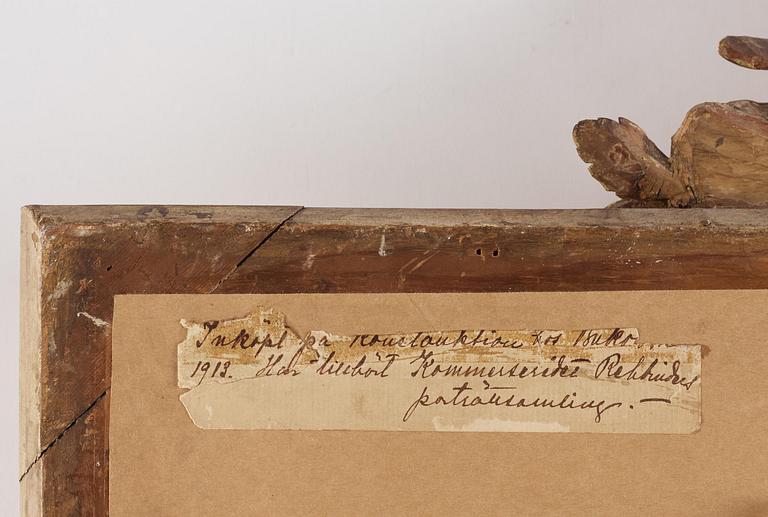 Inköpt på konstauktion hos Buko
1913. Har tillhört Kommerserådet Rehbinders
porträttsamling. —